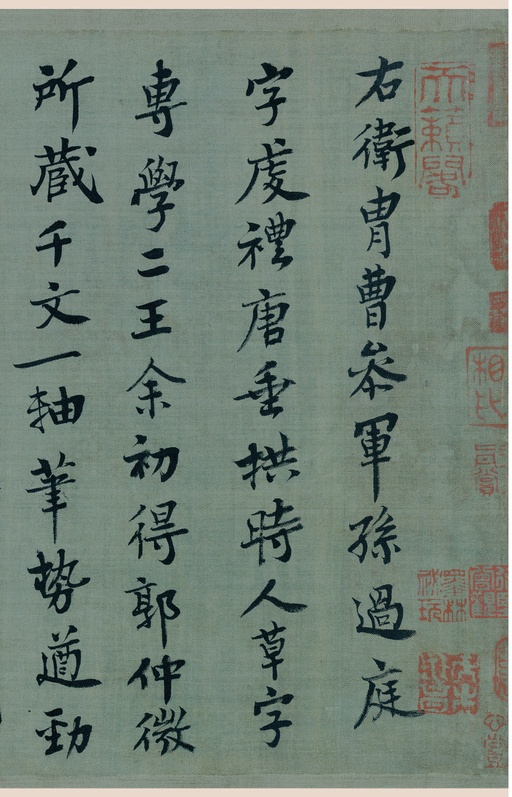 右衛胄曹叅軍孫過庭
字虔禮唐垂拱時人草字
專學二王余初得郭仲微
所蔵千文一軸筆勢遒勁
天籟閣